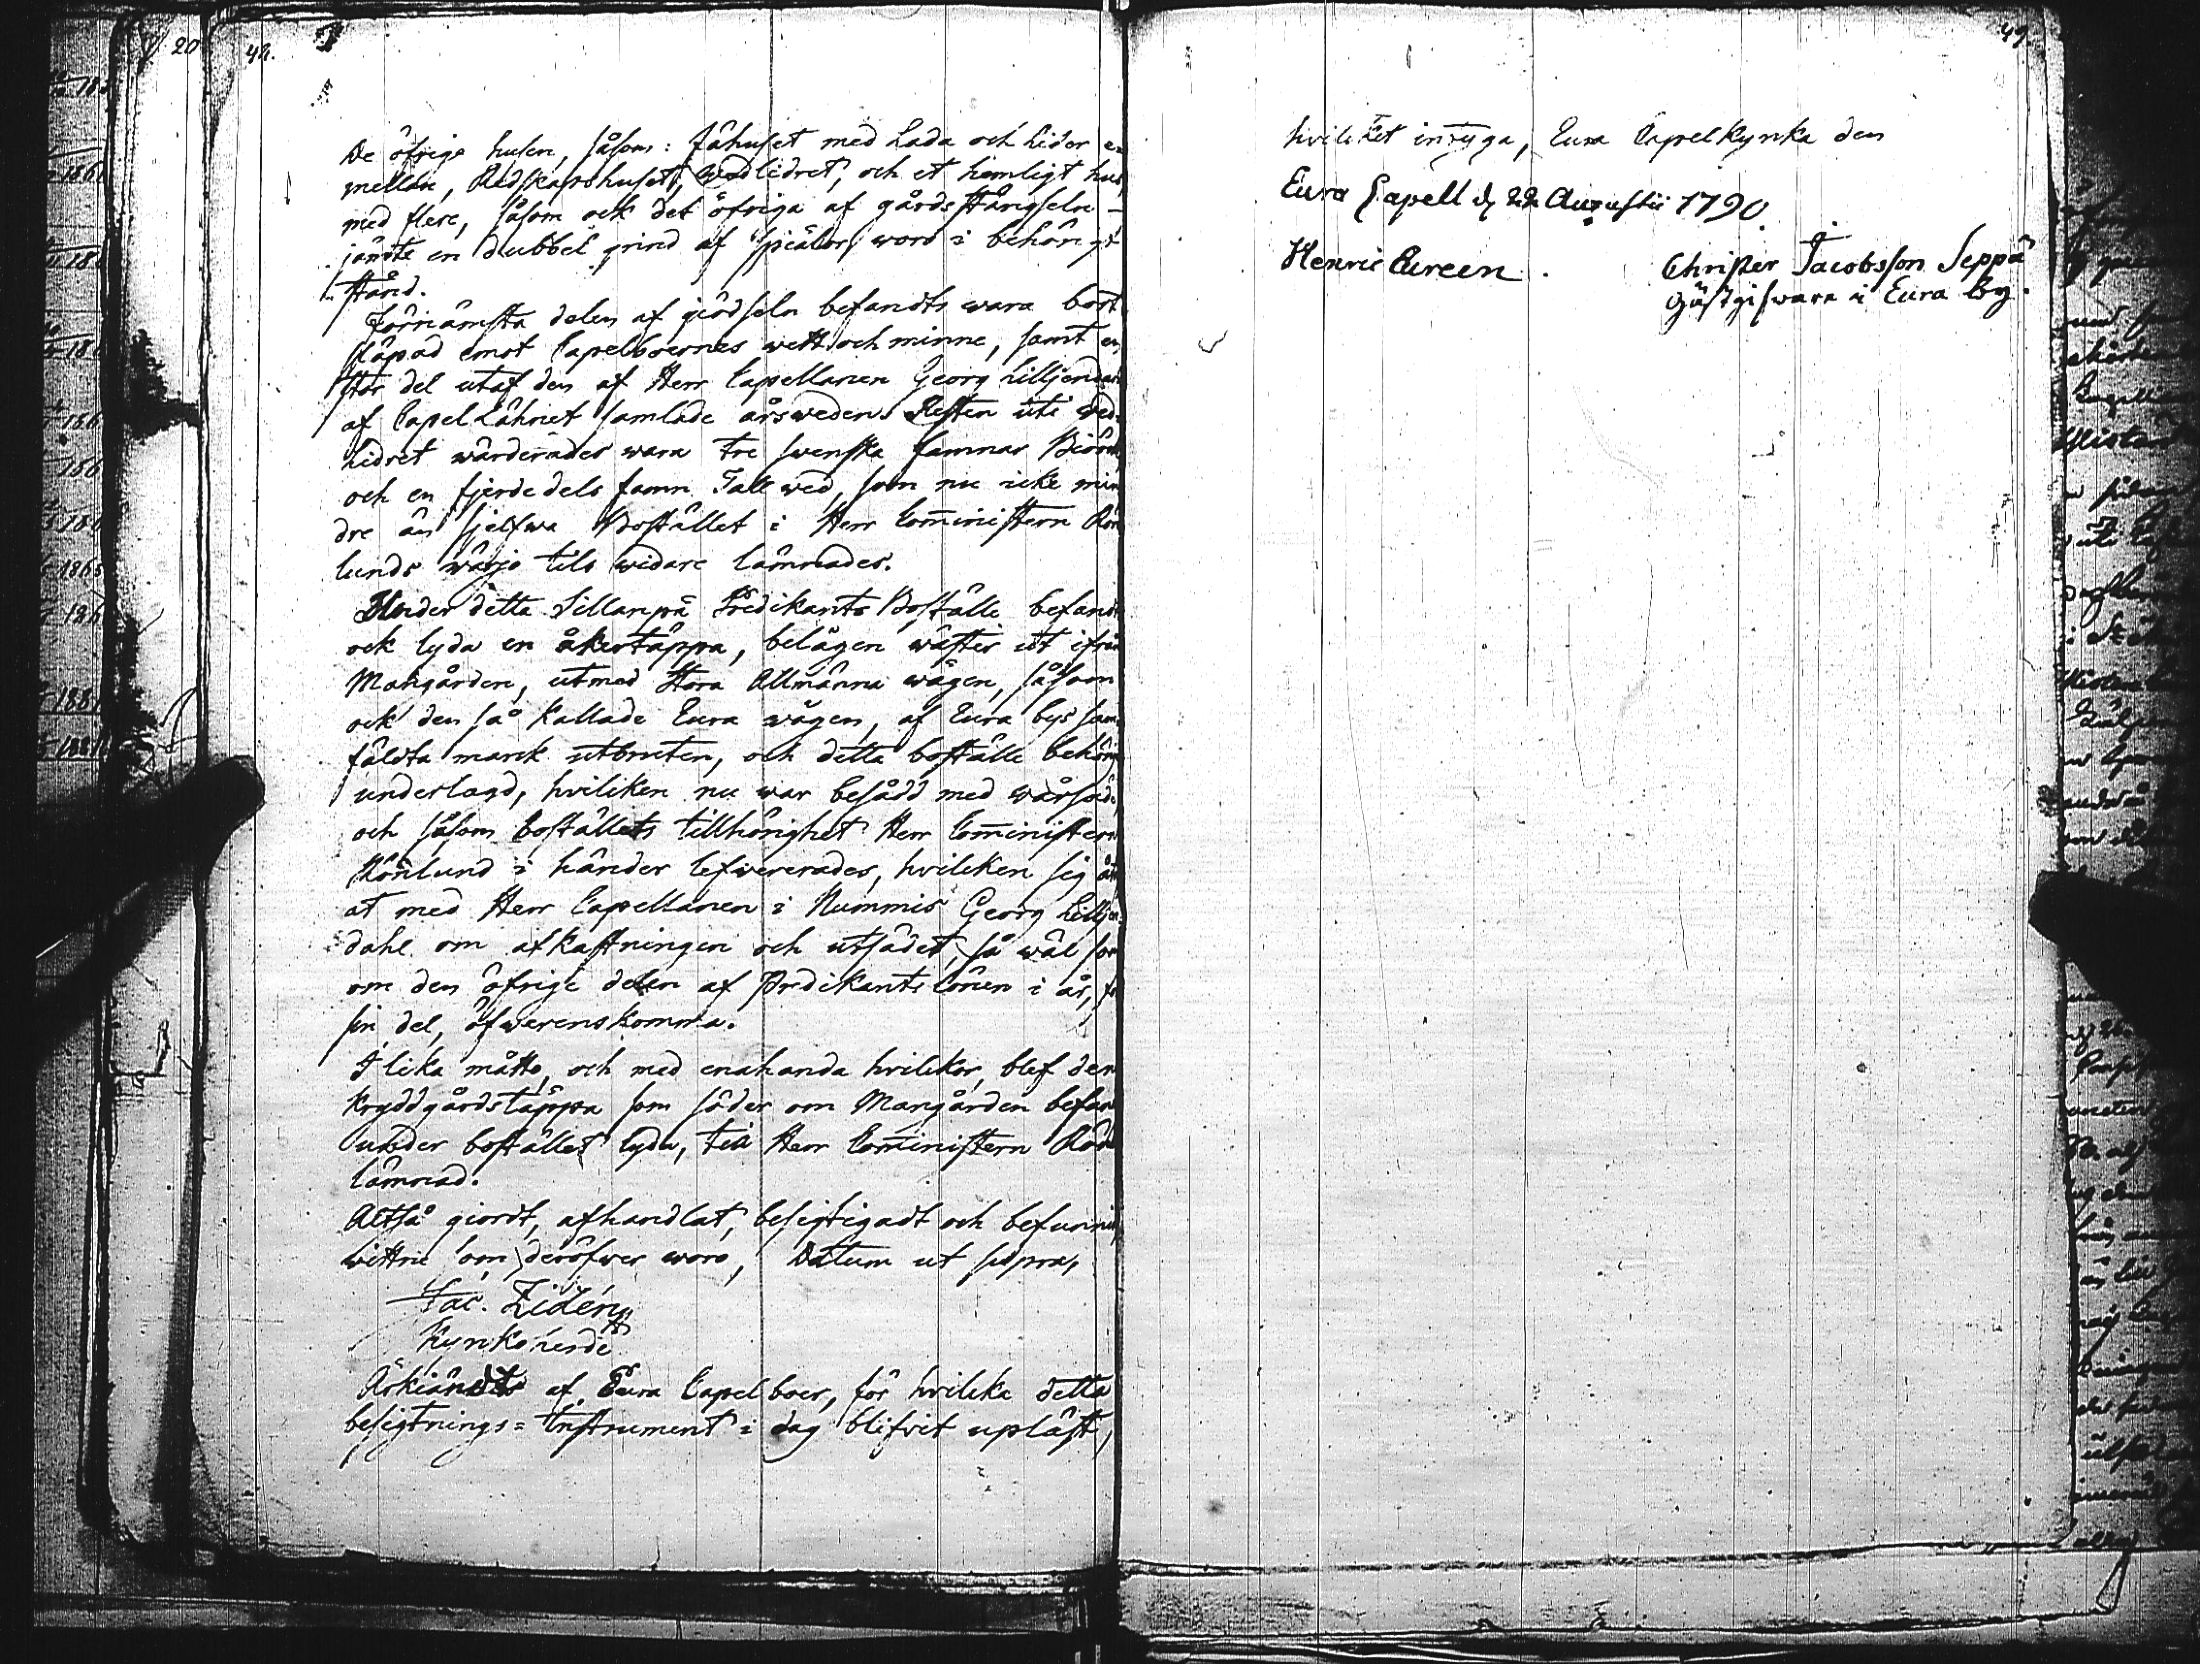 48.
De öfrige husen, såsom: fähuset med Lada och Lider e-
mellan, Redskapshuset, Wedlidret, och et hemligt hus,
med flere, såsom ock det öfriga af gårdsstängseln -
jämte en dubbel grind af spiälor, woro i behörigt
stånd.
Förnämsta delen af giödseln befandts wara bort
släpad emot Capelboernes wett och minne, samt en
stor del utaf den af Herr Capellanen Georg Lilljendahl
af Capel Låhnet samlade årsweden. Resten uti Wed-
lidret wärderades wara tre swenska famnar Biörk
och en fjerdedels famn Tall wed, som nu icke min
dre än sjelfwa Bostället i Herr Com̅inistern Rön
lunds wärjo tils widare lämnades.
Under detta Sillanpä Predikants Boställe befandts
ock lyda en åkertäppa, belägen wäster ut ifrån
Mangården, utmed stora Allmänna wägen, såsom
ock den så kallade Eura wägen, af Eura bys sam-
fäldta mark utbruten, och detta boställe behörig
underlagd, hvilken nu war besådd med wårsäd,
och såsom boställets tillhörighet Herr Com̅inistern
Rönlund i händer lefwererades, hvilken sig åt
at med Herr Capellanen i Nummis Georg Lilljen-
dahl om afkastningen och utsädet, så wäl som
om den öfrige delen af Predikants lönen i år, för
sin del, öfwerenskomma.
I lika måtto, och med enahanda hvilkor, blef den
Kryddgårdstäppa som söder om Mangården befan
under bostället lyda, till Herr Com̅inistern Rön
lämnad.
Altså giordt, afhandlat, besigtigadt och befunnit,
wittne om deröfwer woro, Datum ut supra,
Jac. Zidén
Kyrkoherde
Ärkiändts af Eura Capelboer, för hvilka detta
besigtnings-Instrument i dag blifvit upläst,
49.
hvilket intyga, Eura Capelkyrka den
Eura Capell d. 22 Augustii 1790
Henric Eureen.
Christer Jacobsson Seppä
Gästgifware i Eura by.